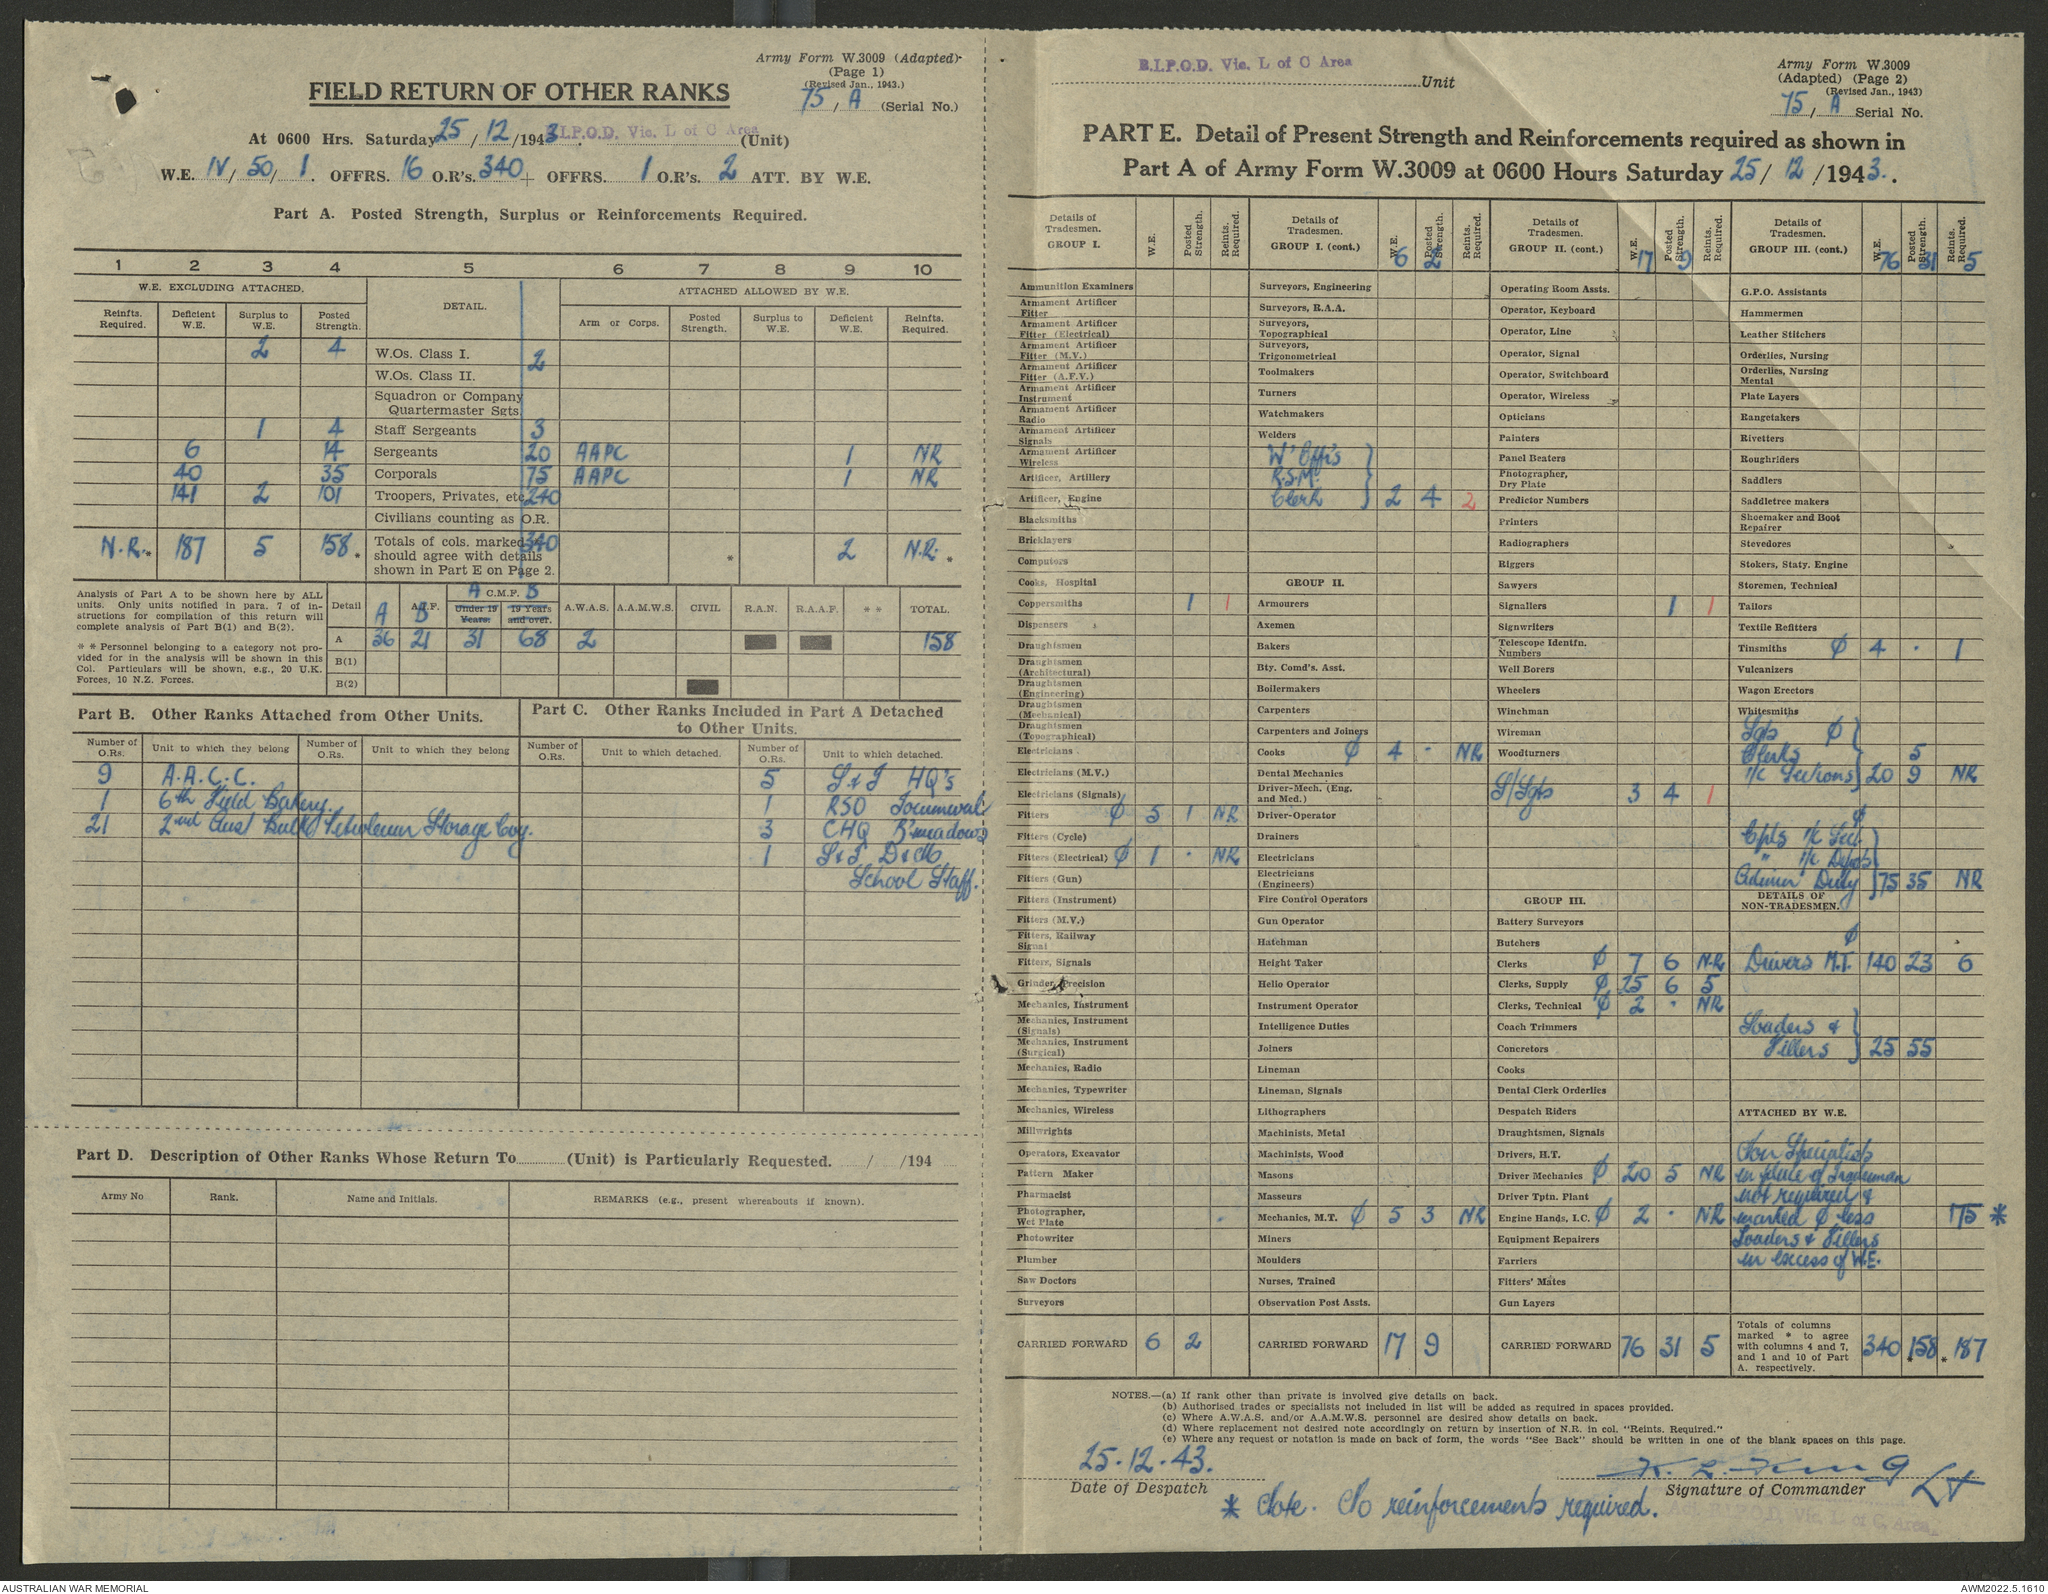 Army Form W.3009 (Adapted)
(Page 1)
(Revised Jan., 1943.)
75 / A (Serial No.)
FIELD RETURN OF OTHER RANKS
At 0600 Hrs. Saturday 25 / 12 / 1943. B.I.P.O.D. Vic. L of C Area (Unit)
W.E. IV / 50 / 1. OFFRS. 16 O.R's. 340 + OFFRS. 1 O.R's. 2 ATT. BY W.E.
Part A. Posted Strength, Surplus or Reinforcements Required.
1 2 3 4 5 6 7 8 9 10
W.E. EXCLUDING ATTACHED. DETAIL. ATTACHED ALLOWED BY W.E.
Reinfts. Required. Deficient W.E. Surplus to W.E. Posted Strength. Arm or Corps. Posted Strength. Surplus to W.E. Deficient W.E. Reinfts. Required.
2 4 W.Os. Class I. 2
W.Os. Class II.
Squadron or Company Quartermaster Sgts.
1 4 Staff Sergeants 3
6 14 Sergeants 20 AAPC 1 NR
40 35 Corporals 75 AAPC 1 NR
141 2 101 Troopers, Privates, etc. 240
Civilians counting as O.R.
N.R.* 187 5 158* Totals of cols. marked * should agree with details shown in Part E on Page 2. 340 * 2 N.R. *
Analysis of Part A to be shown here by ALL units. Only units notified in para. 7 of instructions for compilation of this return will complete analysis of Part B(1) and B(2).
* * Personnel belonging to a category not provided for in the analysis will be shown in this Col. Particulars will be shown, e.g., 20 U.K. Forces, 10 N.Z. Forces.
Detail A A.I.F. B A C.M.F. B Under 19 Years. 19 Years and over. A.W.A.S. A.A.M.W.S. CIVIL R.A.N. R.A.A.F. * * TOTAL.
A 36 21 31 68 2 158
B(1)
B(2)
Part B. Other Ranks Attached from Other Units.
Number of O.Rs. Unit to which they belong Number of O.Rs. Unit to which they belong
9 A.A.C.C.
1 6th Field Bakery.
21 2nd Aust Bulk Petroleum Storage Coy.
Part C. Other Ranks Included in Part A Detached to Other Units.
Number of O.Rs. Unit to which detached. Number of O.Rs. Unit to which detached.
5 S & T HQ's
1 RSO Tocumwal
3 CHQ B'meadows
1 S & T D & M
School Staff.
Part D. Description of Other Ranks Whose Return To (Unit) is Particularly Requested. / /194
Army No Rank. Name and Initials. REMARKS (e.g., present whereabouts if known).
B.I.P.O.D. Vic. L of C Area Unit
Army Form W.3009
(Adapted) (Page 2)
(Revised Jan., 1943)
75 / A Serial No.
PART E. Detail of Present Strength and Reinforcements required as shown in
Part A of Army Form W.3009 at 0600 Hours Saturday 25 / 12 / 1943.
Details of Tradesmen. GROUP I. W.E. Posted Strength. Reints. Required.
Ammunition Examiners
Armament Artificer Fitter
Armament Artificer Fitter (Electrical)
Armament Artificer Fitter (M.V.)
Armament Artificer Fitter (A.F.V.)
Armament Artificer Instrument
Armament Artificer Radio
Armament Artificer Signals
Armament Artificer Wireless
Artificer, Artillery
Artificer, Engine
Blacksmiths
Bricklayers
Computers
Cooks, Hospital
Coppersmiths 1 1
Dispensers
Draughtsmen
Draughtsmen (Architectural)
Draughtsmen (Engineering)
Draughtsmen (Mechanical)
Draughtsmen (Topographical)
Electricians
Electricians (M.V.)
Electricians (Signals)
Fitters ϕ 5 1 NR
Fitters (Cycle)
Fitters (Electrical) ϕ 1 · NR
Fitters (Gun)
Fitters (Instrument)
Fitters (M.V.)
Fitters, Railway Signal
Fitters, Signals
Grinder, Precision
Mechanics, Instrument
Mechanics, Instrument (Signals)
Mechanics, Instrument (Surgical)
Mechanics, Radio
Mechanics, Typewriter
Mechanics, Wireless
Millwrights
Operators, Excavator
Pattern Maker
Pharmacist
Photographer, Wet Plate
Photowriter
Plumber
Saw Doctors
Surveyors
CARRIED FORWARD 6 2
Details of Tradesmen. GROUP I. (cont.) W.E. Posted Strength. Reints. Required. 6 2
Surveyors, Engineering
Surveyors, R.A.A.
Surveyors, Topographical
Surveyors, Trigonometrical
Toolmakers
Turners
Watchmakers
Welders
W' Offs
R.S.M.
Clerk 2 4 2
GROUP II.
Armourers
Axemen
Bakers
Bty. Comd's. Asst.
Boilermakers
Carpenters
Carpenters and Joiners
Cooks ϕ 4 - NR
Dental Mechanics
Driver-Mech. (Eng. and Med.)
Driver-Operator
Drainers
Electricians
Electricians (Engineers)
Fire Control Operators
Gun Operator
Hatchman
Height Taker
Helio Operator
Instrument Operator
Intelligence Duties
Joiners
Lineman
Lineman, Signals
Lithographers
Machinists, Metal
Machinists, Wood
Masons
Masseurs
Mechanics, M.T. ϕ 5 3 NR
Miners
Moulders
Nurses, Trained
Observation Post Assts.
CARRIED FORWARD 17 9
Details of Tradesmen. GROUP II. (cont.) W.E. Posted Strength. Reints. Required. 17 9
Operating Room Assts.
Operator, Keyboard
Operator, Line
Operator, Signal
Operator, Switchboard
Operator, Wireless
Opticians
Painters
Panel Beaters
Photographer, Dry Plate
Predictor Numbers
Printers
Radiographers
Riggers
Sawyers
Signallers 1 1
Signwriters
Telescope Identfn. Numbers
Well Borers
Wheelers
Winchman
Wireman
Woodturners
S/Sgts 3 4 1
GROUP III.
Battery Surveyors
Butchers
Clerks ϕ 7 6 N.R
Clerks, Supply ϕ 15 6 5
Clerks, Technical ϕ 2 · NR
Coach Trimmers
Concretors
Cooks
Dental Clerk Orderlies
Despatch Riders
Draughtsmen, Signals
Drivers, H.T.
Driver Mechanics ϕ 20 5 NR
Driver Tptn. Plant
Engine Hands, I.C. ϕ 2 · NR
Equipment Repairers
Farriers
Fitters' Mates
Gun Layers
CARRIED FORWARD 76 31 5
Details of Tradesmen. GROUP III. (cont.) W.E. Posted Strength. Reints. Required. 76 31 5
G.P.O. Assistants
Hammermen
Leather Stitchers
Orderlies, Nursing
Orderlies, Nursing Mental
Plate Layers
Rangetakers
Rivetters
Roughriders
Saddlers
Saddletree makers
Shoemaker and Boot Repairer
Stevedores
Stokers, Staty. Engine
Storemen, Technical
Tailors
Textile Refitters
Tinsmiths ϕ 4 · 1
Vulcanizers
Wagon Erectors
Whitesmiths
Sgts ϕ
Clerks 5
i/c Sections 20 9 NR
ϕ
Cpls i/c Sec.
" i/c Depots
Admin Duty 75 35 NR
DETAILS OF NON-TRADESMEN.
ϕ
Drivers M.T. 140 23 6
Loaders &
Fillers 25 55
ATTACHED BY W.E.
Non Specialists
in place of Tradesman
not required &
marked ϕ less 175 *
Loaders & Fillers
in excess of W.E.
Totals of columns marked * to agree with columns 4 and 7, and 1 and 10 of Part A, respectively. 340 158 * 187 *
NOTES.—(a) If rank other than private is involved give details on back.
(b) Authorised trades or specialists not included in list will be added as required in spaces provided.
(c) Where A.W.A.S. and/or A.A.M.W.S. personnel are desired show details on back.
(d) Where replacement not desired note accordingly on return by insertion of N.R. in col. "Reints. Required."
(e) Where any request or notation is made on back of form, the words "See Back" should be written in one of the blank spaces on this page.
25.12.43.
Date of Despatch
K. L. King Lt
Signature of Commander
B.I.P.O.D. Vic. L. of C. Area.
* Note. No reinforcements required.
AUSTRALIAN WAR MEMORIAL
AWM2022.5.1610